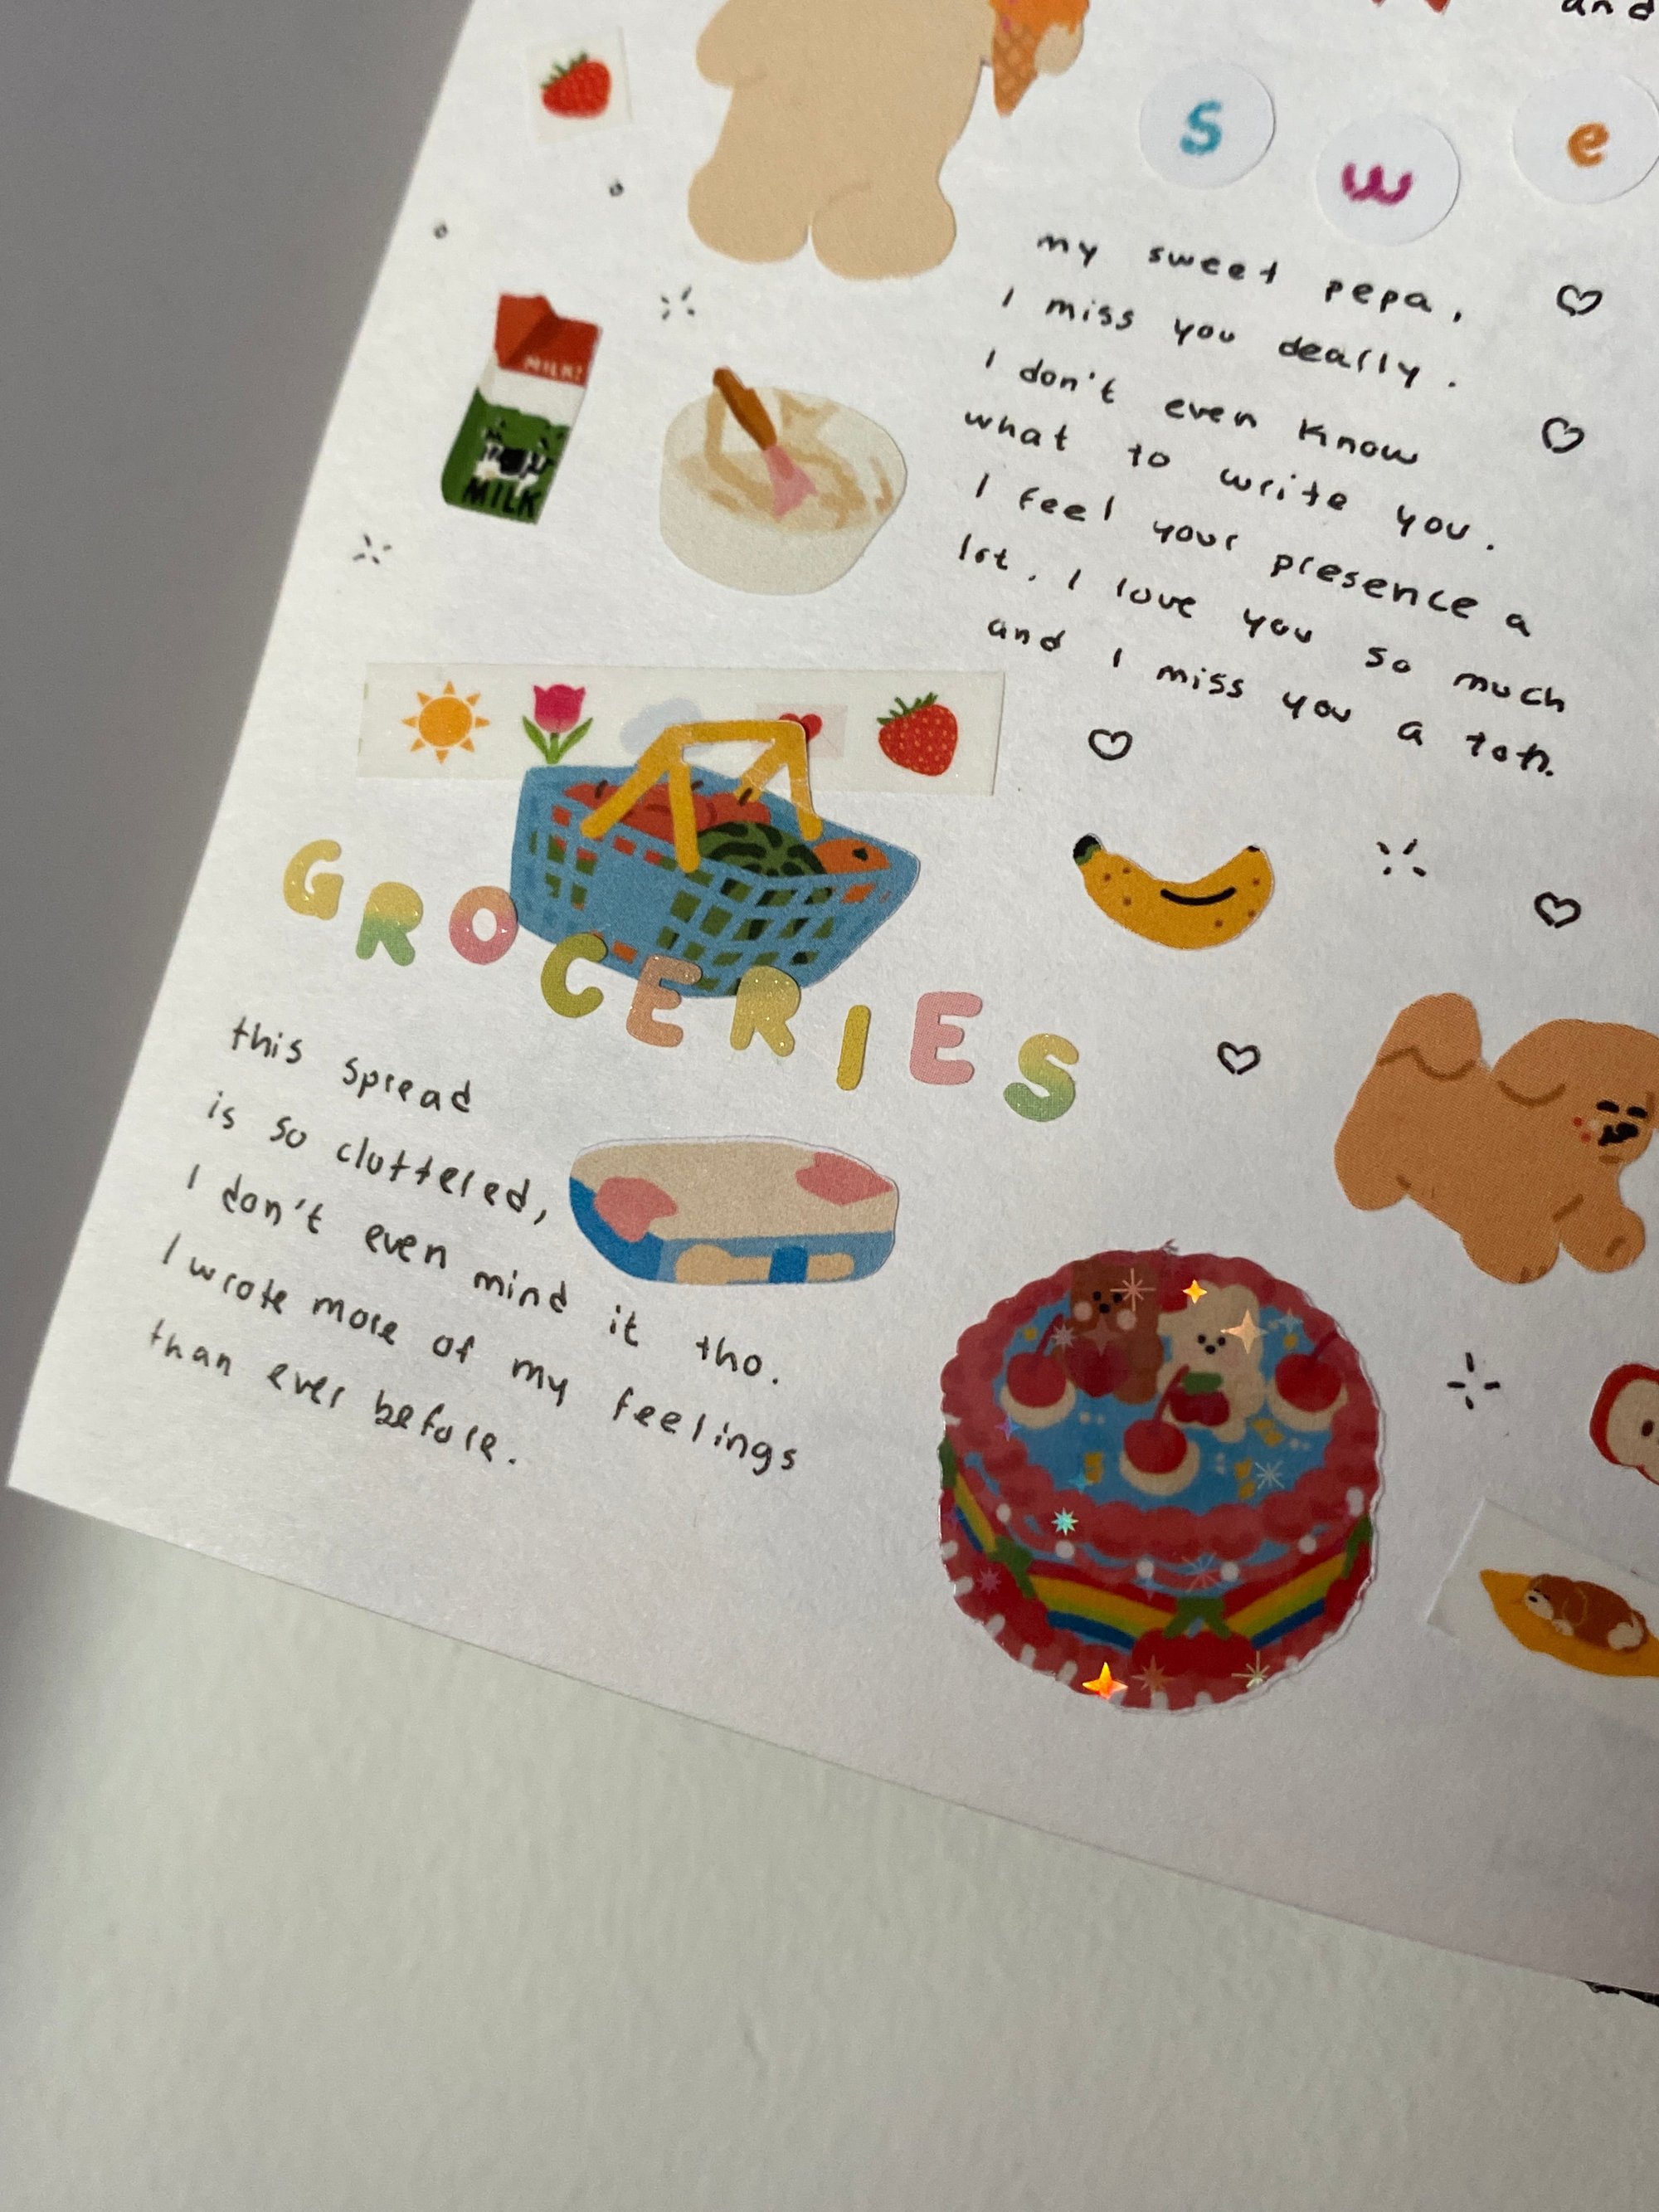 and
S w e
my sweet pepa,
I miss you dearly.
I don't even know
what to write you.
I feel your presence a
lot. I love you so much
and I miss you a ton.
MILK!
MILK
GROCERIES
this spread
is so cluttered,
I don't even mind it tho.
I wrote more of my feelings
than ever before.